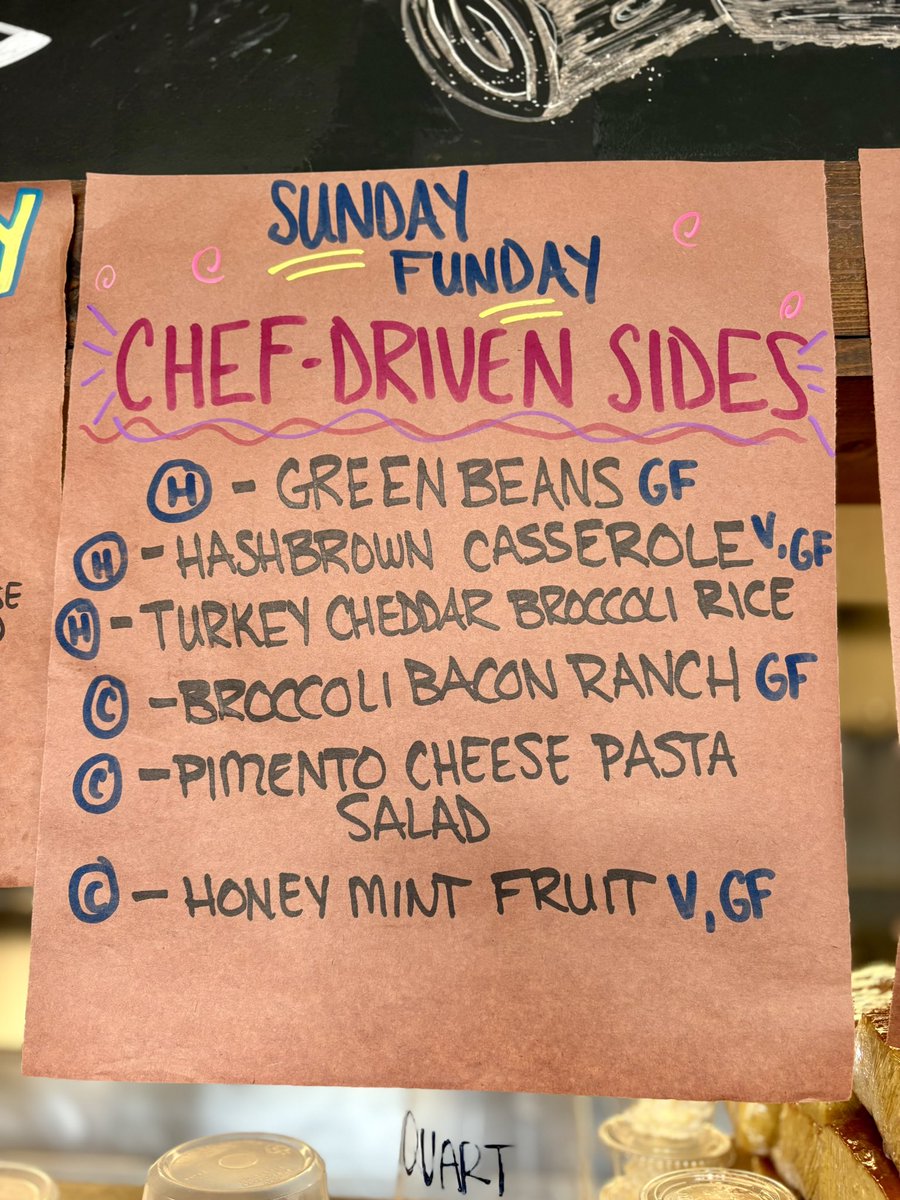 SUNDAY
FUNDAY
CHEF-DRIVEN SIDES
H - GREEN BEANS GF
H - HASHBROWN CASSEROLE V, GF
H - TURKEY CHEDDAR BROCCOLI RICE
C - BROCCOLI BACON RANCH GF
C - PIMENTO CHEESE PASTA
SALAD
C - HONEY MINT FRUIT V, GF
QUART